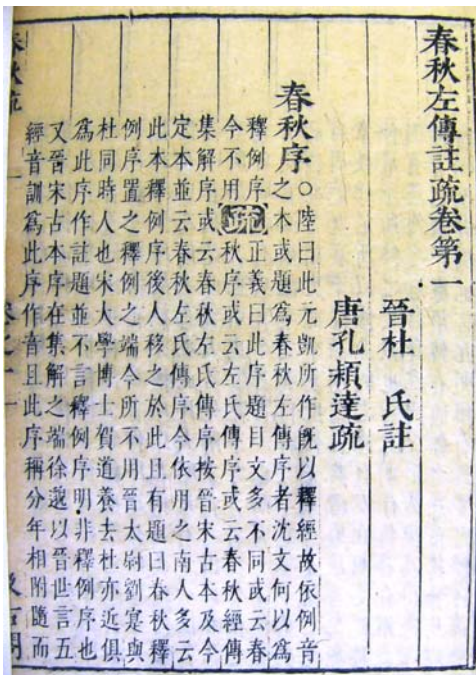 春秋左傳註疏卷第一
晉杜 氏註
唐孔頴達疏
春秋序 ○陸曰此元凱所作旣以釋經故依例音
之本或題爲春秋左傳序者沈文何以爲
釋例序
今不用
疏
正義曰此序題目文多不同或云春
秋序或云左氏傳序或云春秋經傳
集解序或云春秋左氏傳序按晉宋古本及今
定本並云春秋左氏傳序今依用之南人多云
此本釋例序後人移之於此且有題曰春秋釋
例序置之釋例之端今所不用晉太尉劉寔與
杜同時人也宋大學博士賀道養去杜亦近俱
爲此序作註題並不言釋例序明非釋例序也
又晉宋古本序在集解之端徐邈以晉世言五
經音訓爲此序作音且此序稱分年相附隨而
春秋疏